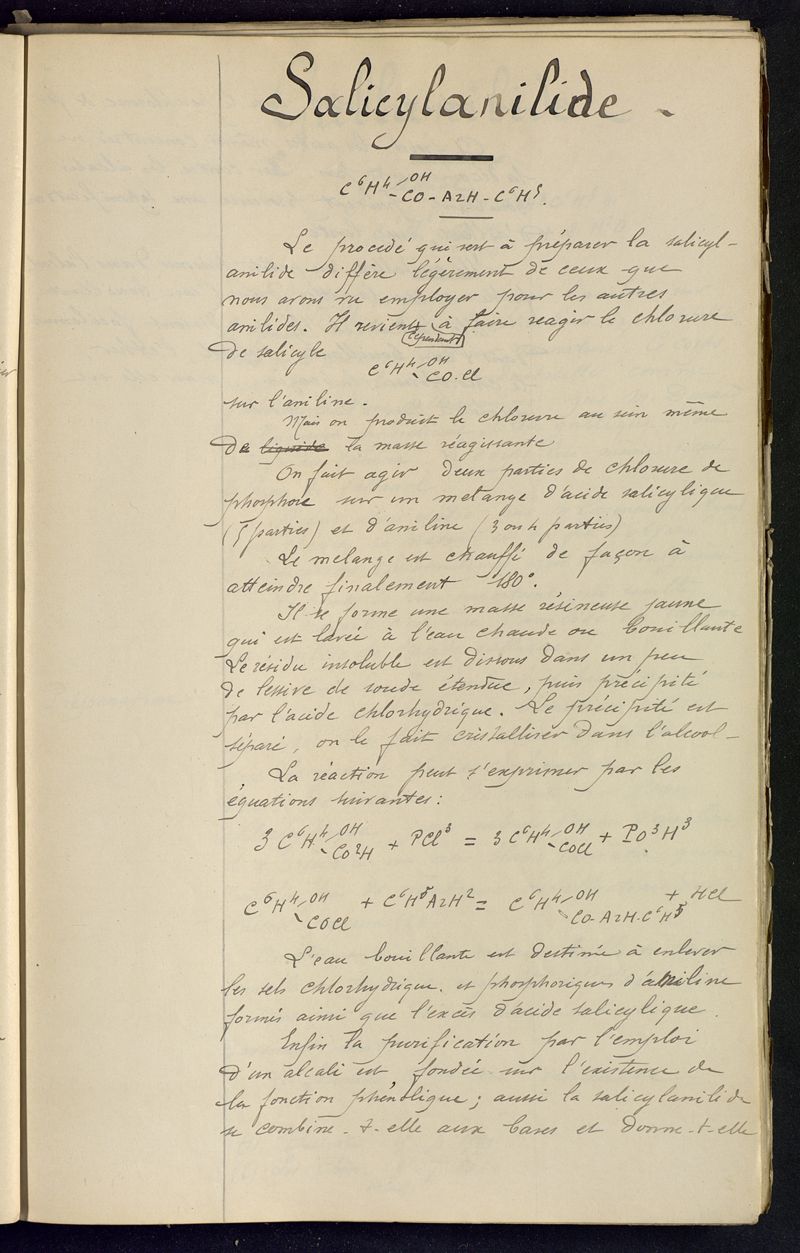 Salicylanilide
C⁶H⁴ OH
CO - AzH - C⁶H⁵.
Le procédé qui sert à préparer la salicyl-
anilide diffère légèrement de ceux que
nous avons vu employer pour les autres
anilides. Il revient à faire reagir le chlorure
(cependant)
de salicyle
C⁶H⁴ OH
CO.Cl
sur l'aniline.
Mais on produit le chlorure au sein même
de liquide la masse réagissante
On fait agir deux parties de chlorure de
phosphore sur un melange d'acide salicylique
(5 parties) et d'aniline (3 ou 4 parties)
Le melange est chauffé de façon à
atteindre finalement 180°.
Il se forme une masse résineuse jaune
qui est lavée à l'eau chaude ou bouillante
Le résidu insoluble est dissous dans un peu
de lessive de soude étendue, puis précipité
par l'acide chlorhydrique. Le précipité est
séparé, on le fait cristalliser dans l'alcool-
La réaction peut s'exprimer par les
équations suivantes:
3 C⁶H⁴ OH CO²H + PCl³ = 3 C⁶H⁴ OH COCl + PO³H³
C⁶H⁴ OH COCl + C⁶H⁵AzH² = C⁶H⁴ OH CO-AzH-C⁶H⁵ + HCl
L'eau bouillante est destinée à enlever
les sels chlorhydrique. et phosphoriques d'aniline
formés ainsi que l'excès d'acide salicylique.
Enfin la purification par l'emploi
d'un alcali est fondée sur l'existence de
la fonction phénolique; aussi la salicylanilide
se combine-t-elle aux bases et donne-t-elle